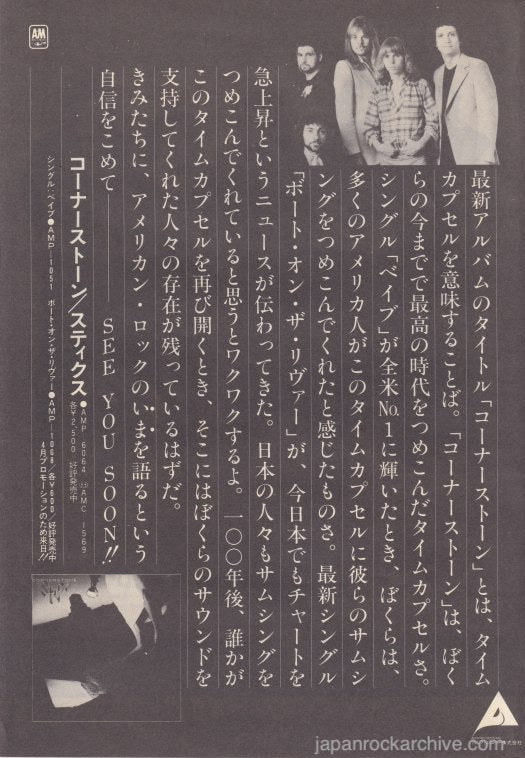 AM
最新アルバムのタイトル「コーナーストーン」とは、タイム
カプセルを意味することば。「コーナーストーン」は、ぼく
らの今までで最高の時代をつめこんだタイムカプセルさ。
シングル「ベイブ」が全米No.1に輝いたとき、ぼくらは、
多くのアメリカ人がこのタイムカプセルに彼らのサムシ
ングをつめこんでくれたと感じたものさ。最新シングル
「ボート・オン・ザ・リヴァー」が、今日本でもチャートを
急上昇というニュースが伝わってきた。日本の人々もサムシングを
つめこんでくれていると思うとワクワクするよ。一〇〇年後、誰かが
このタイムカプセルを再び開くとき、そこにはぼくらのサウンドを
支持してくれた人々の存在が残っているはずだ。
きみたちに、アメリカン・ロックのいまを語るという
自信をこめて―― SEE YOU SOON!!
コーナーストーン/スティクス
●AMP-6064 AMC-1569
各¥2,500 好評発売中
シングル:ベイブ●AMP-1051 ボート・オン・ザ・リヴァー●AMP-1068/各¥600/好評発売中
4月プロモーションのため来日!!
CORNERSTONE
japanrockarchive.com